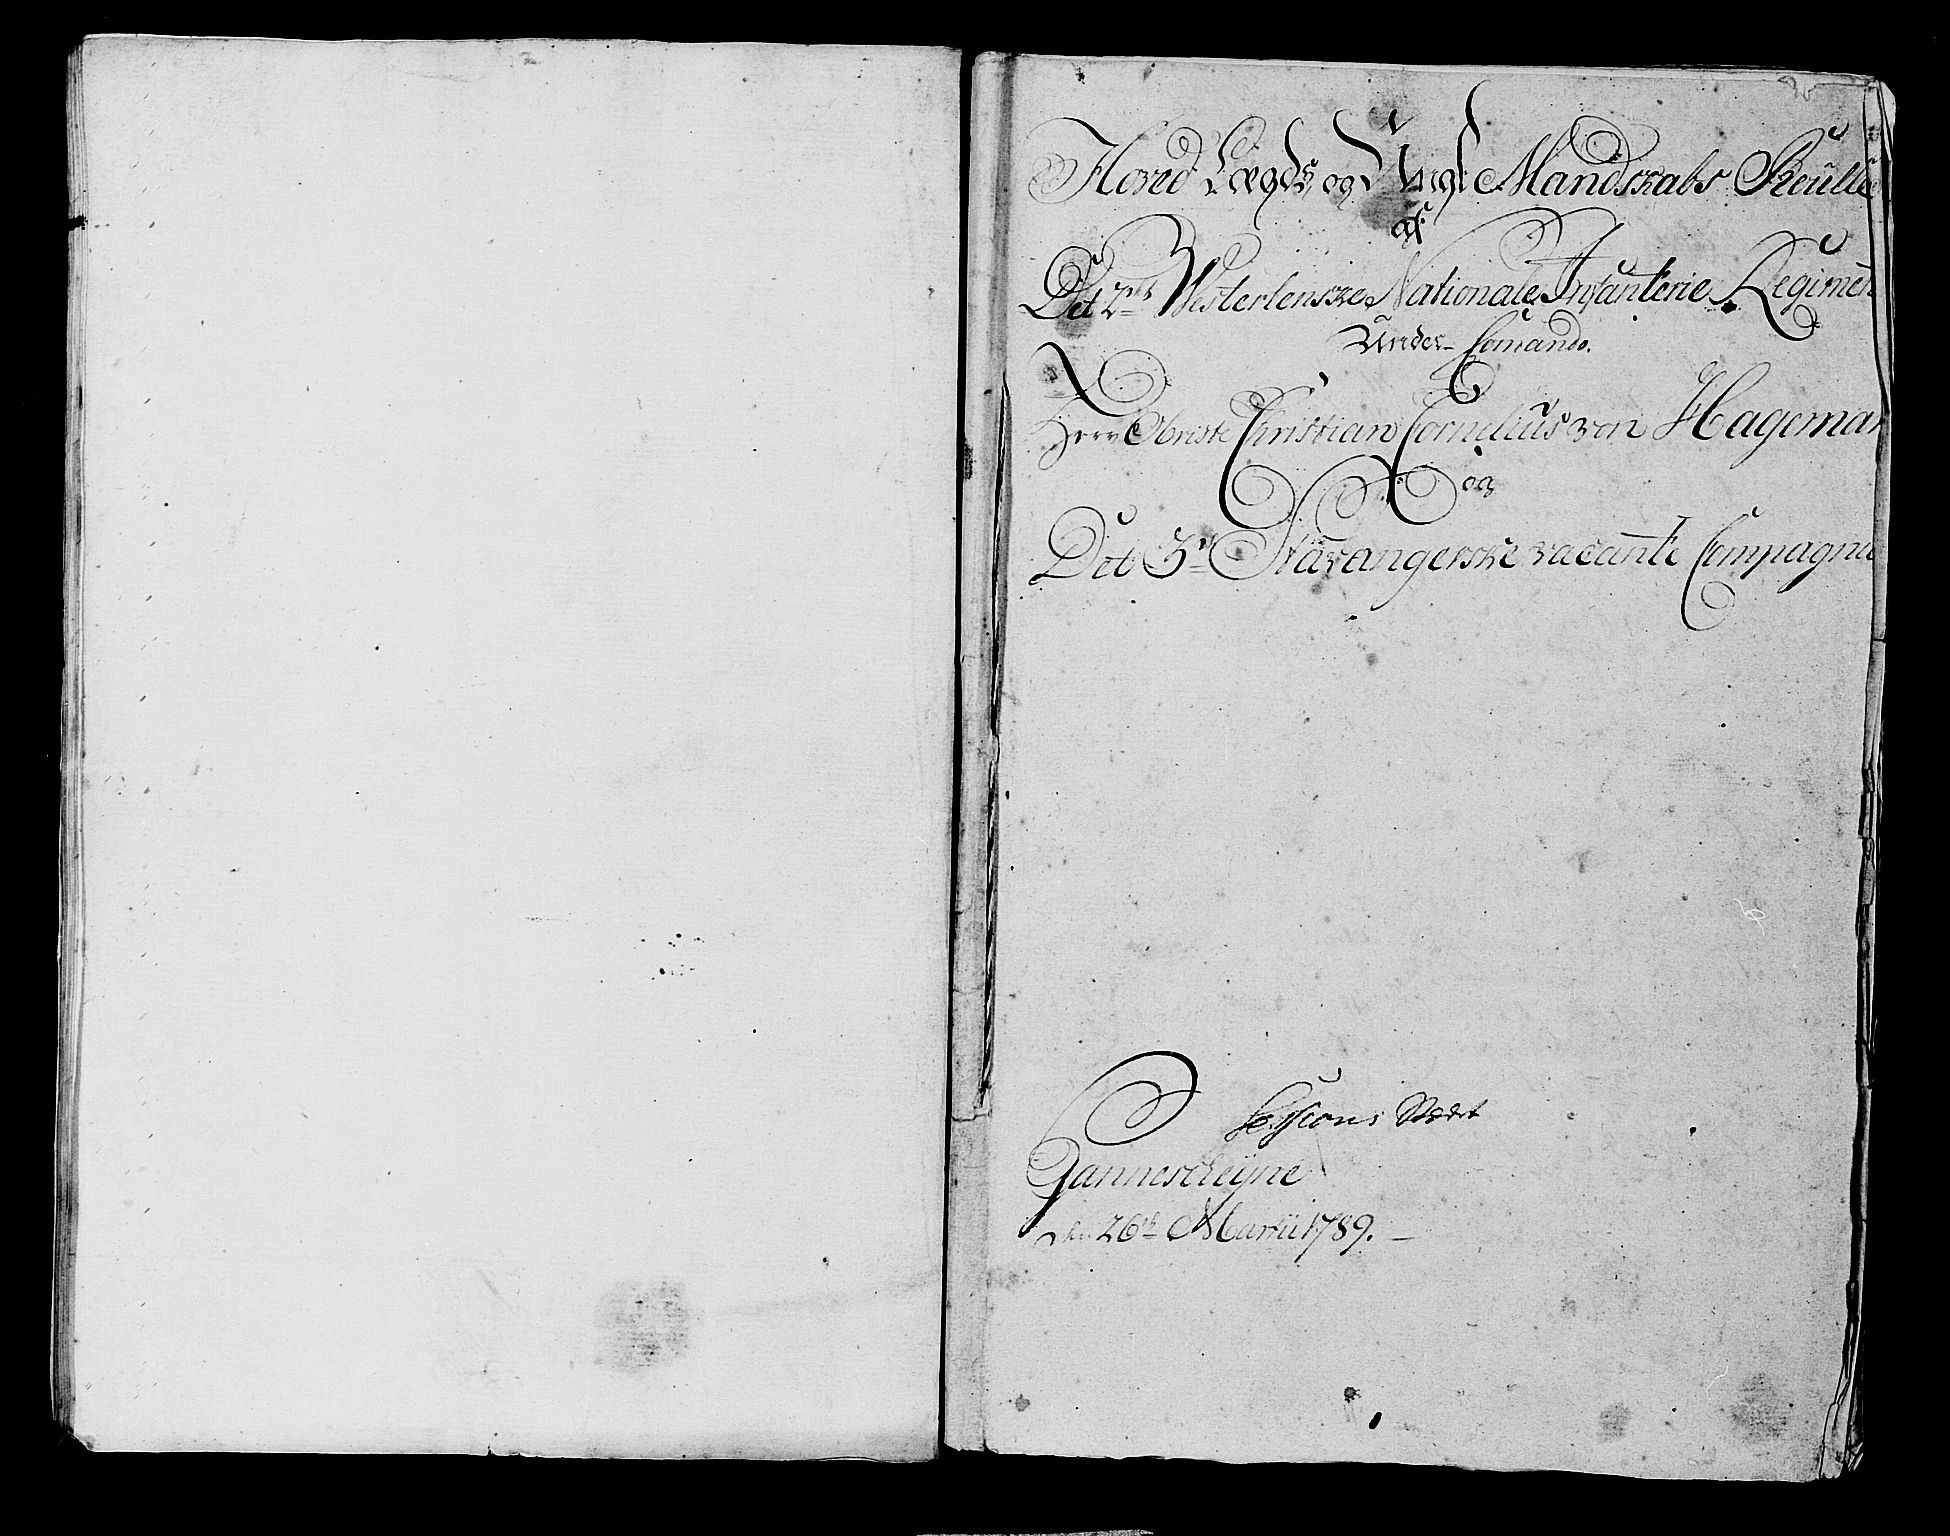 Hoved Lægds og Ungt Mandskabs Reulle
af
Det 2det Westerlenske Nationale Infanterie Regiment
Under Comando.
Herr Obriste Christian Cornelius von Hageman
og
Det 5te Stavangerske vacante Compagnie
Sessions Stædet
Jannescheijne
den 26de Martii 1789.